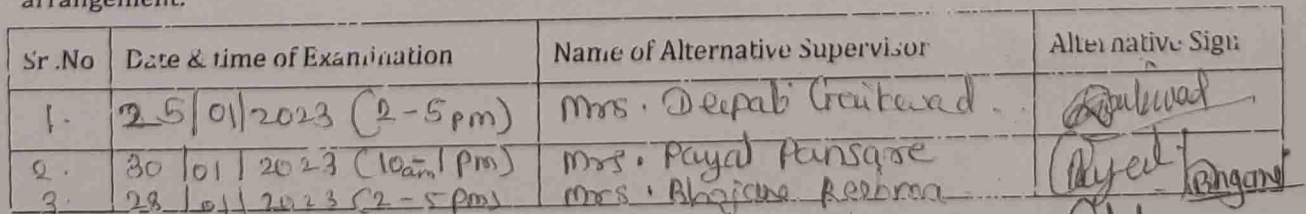 arrangement.
Sr .No Date & time of Examination Name of Alternative Supervisor Alternative Sign
1. 25/01/2023 (2-5pm) Mrs. Deepali Gaikwad. Gaikwad
2. 30/01/2023 (10am 1pm) Mrs. Payal Pansare
3. 28/01/2023 (2-5pm) Mrs. Reshma